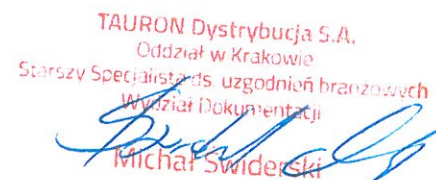 TAURON Dystrybucja S.A.
Oddział w Krakowie
Starszy Specjalista ds. uzgodnień branżowych
Wydział Dokumentacji
Michał Świderski